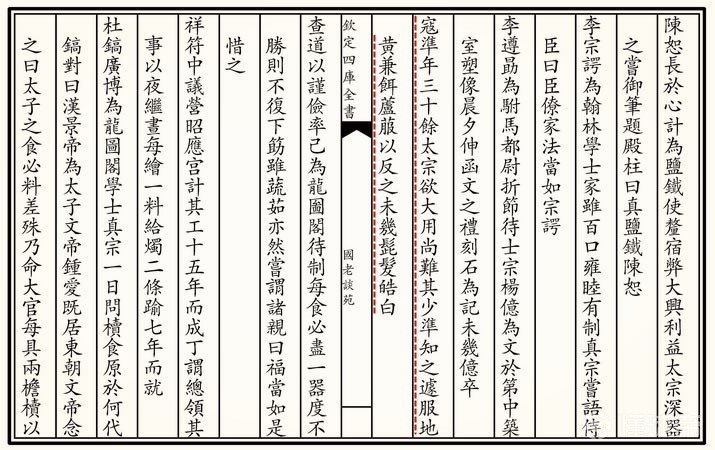 陳恕長於心計為鹽鐵使釐宿弊大興利益太宗深器
之嘗御筆題殿柱曰真鹽鐵陳恕
李宗諤為翰林學士家雖百口雍睦有制真宗嘗語侍
臣曰臣僚家法當如宗諤
李遵勗為駙馬都尉折節待士宗楊億為文於第中築
室塑像晨夕伸函文之禮刻石為記未幾億卒
寇準年三十餘太宗欲大用尚難其少準知之遽服地
黄兼餌蘆菔以反之未幾髭髮皓白
欽定四庫全書
國老談苑
查道以謹儉率己為龍圖閣待制每食必盡一器度不
勝則不復下筯雖蔬茹亦然嘗謂諸親曰福當如是
惜之
祥符中議營昭應宫計其工十五年而成丁謂總領其
事以夜繼晝每繪一料給燭二條踰七年而就
杜鎬廣博為龍圖閣學士真宗一日問櫝食原於何代
鎬對曰漢景帝為太子文帝鍾愛既居東朝文帝念
之曰太子之食必料差殊乃命大官每具兩檐櫝以